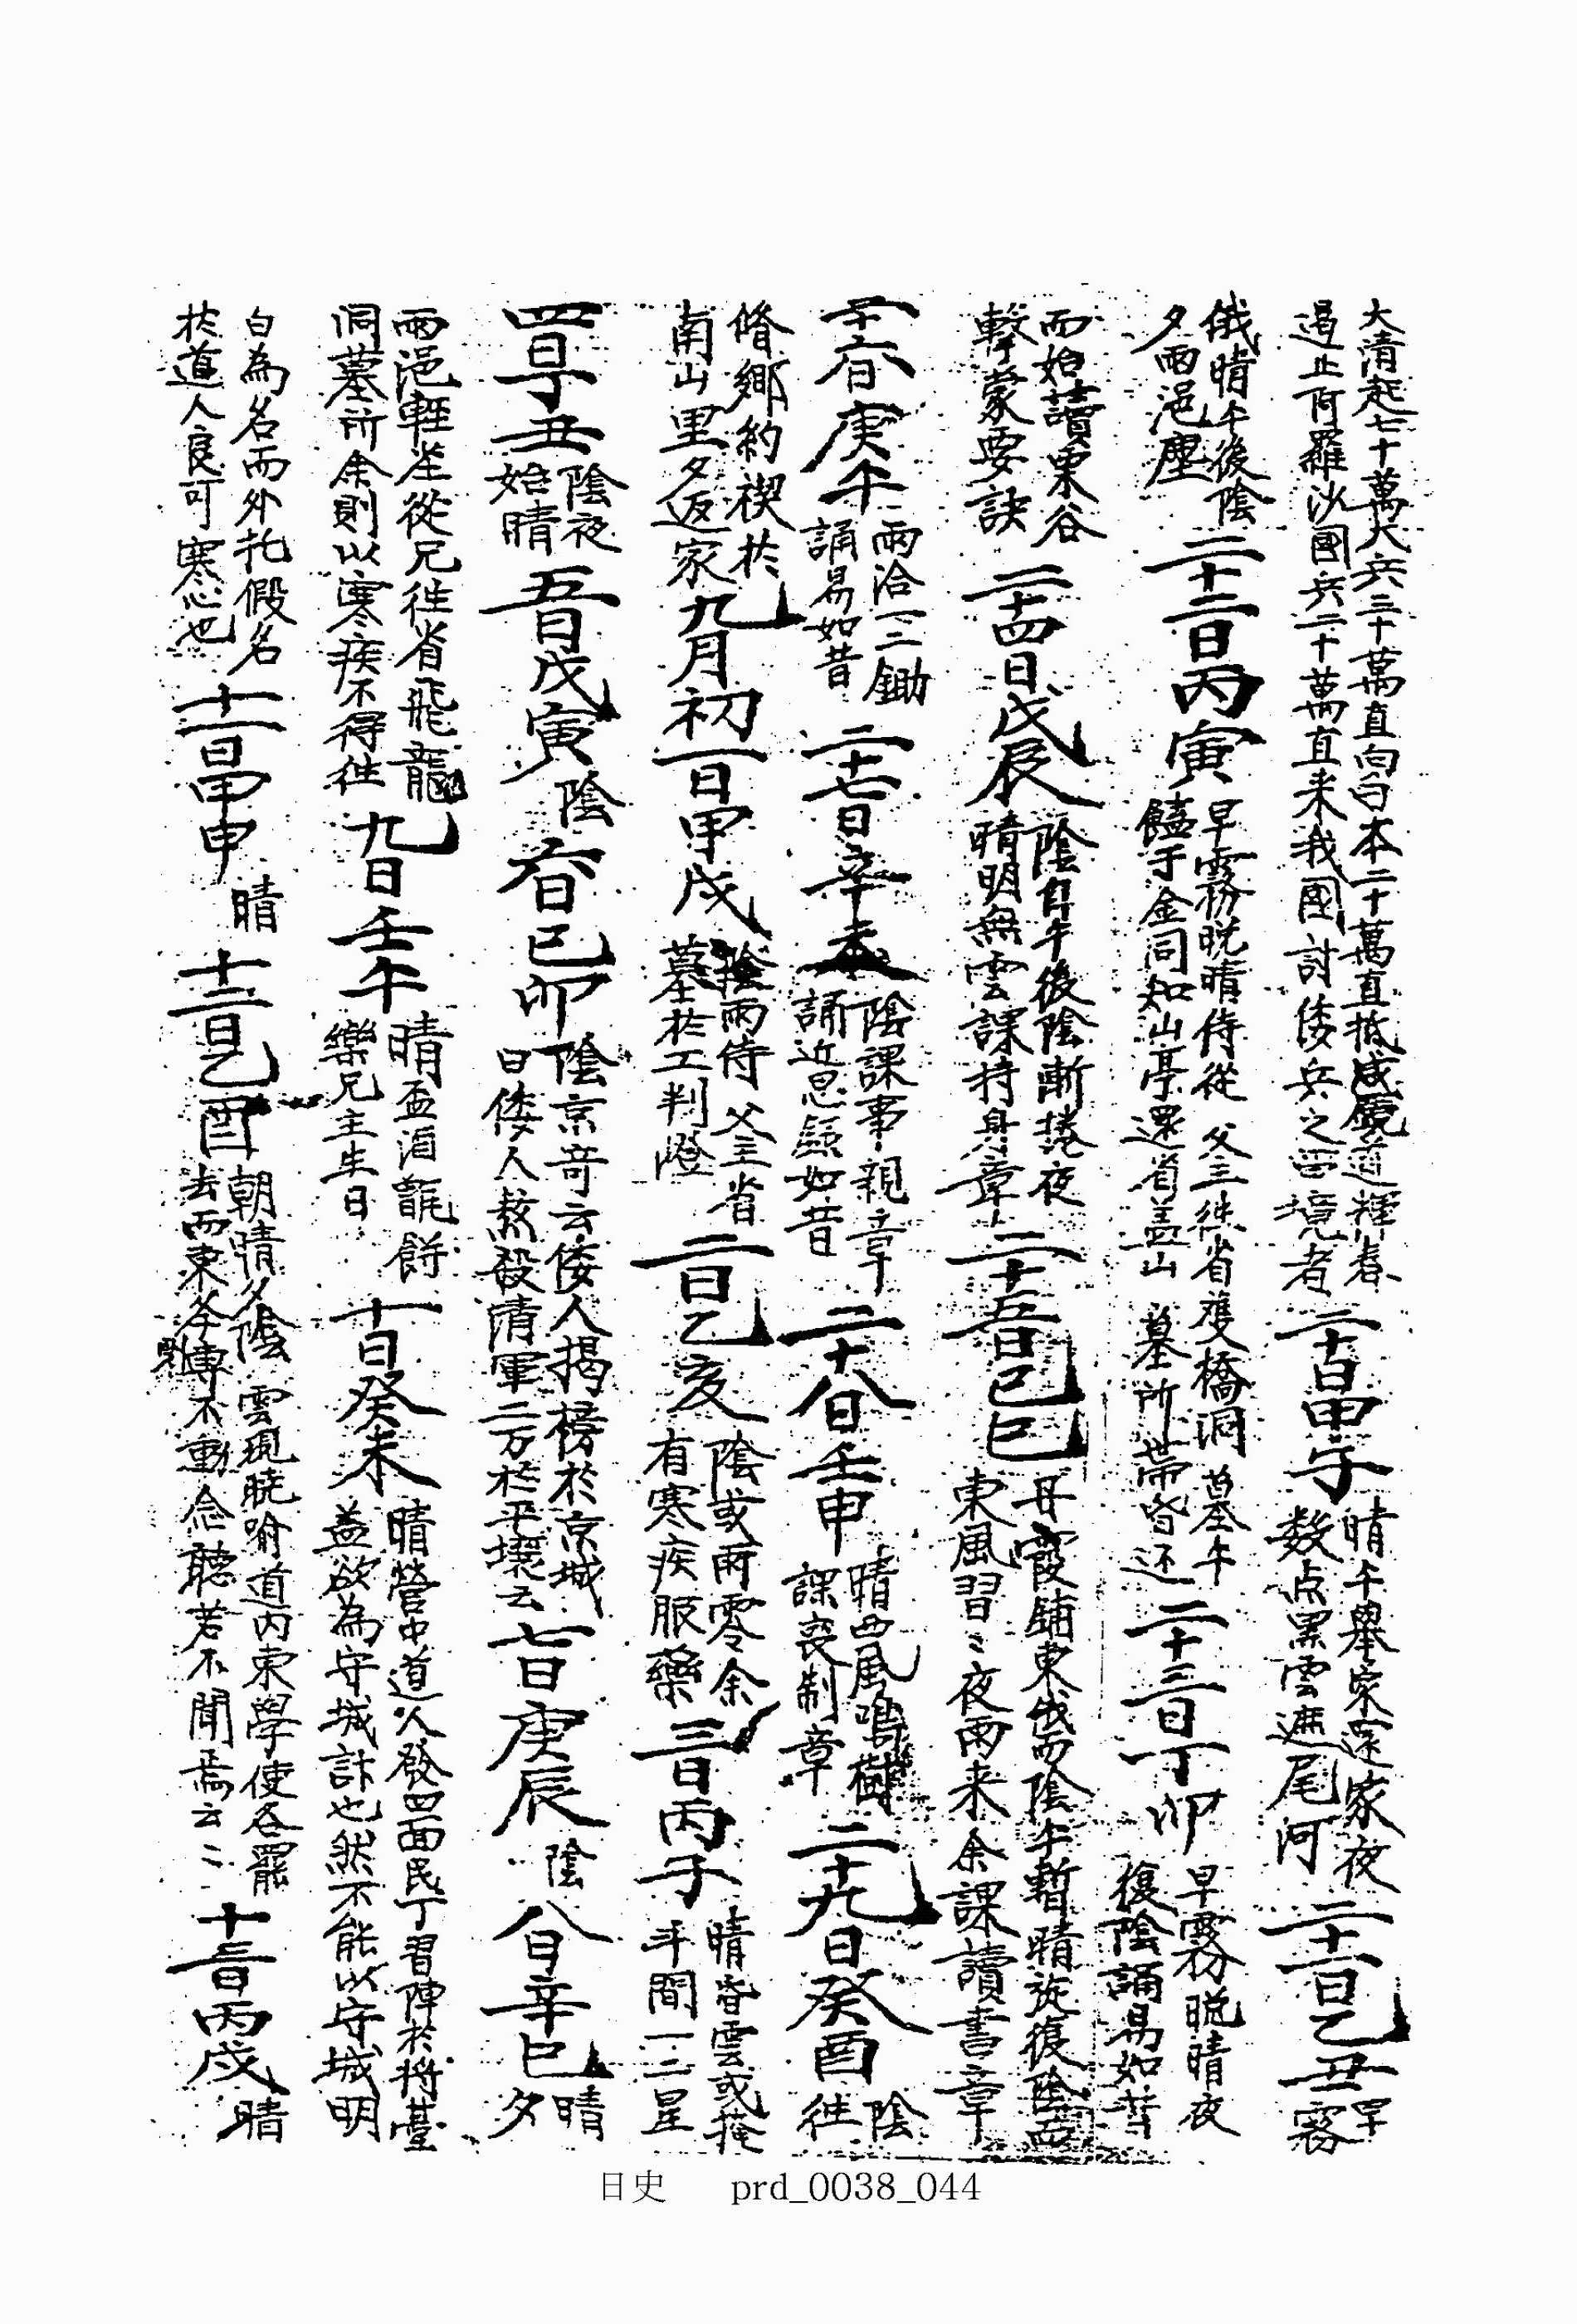 大清起七十萬大兵三十萬直向日本二十萬直抵咸鏡道輝春
遏止阿羅沙國兵二十萬直来我國討倭兵之留境者
二十日甲子
晴午舉家還家夜
数点黑雲遮尾河
二十一日乙丑
早
霧
俄晴午後陰
夕雨浥塵
二十二日丙寅
早霧晩晴侍從 父主徃省雙橋洞 墓午
饁于金同知山亭還省盖山 墓所帶昏还
二十三日丁卯
早霧晩晴夜
復陰誦易如昔
而始讀栗谷
擊蒙要訣
二十四日戊辰
陰自午後陰漸捲夜
晴明無雲課持身章
二十五日己巳
丹霞鋪東俄而陰午暫晴旋復陰而
東風習〻夜雨来余課讀書章
二十六日庚午
雨洽一二鋤
誦易如昔
二十七日辛未
陰課事親章
誦近思錄如昔
二十八日壬申
晴西風鳴樹
課喪制章
二十九日癸酉
陰
徃
脩鄉約禊於
南山里夕返家
九月初一日甲戌
陰雨侍 父主省
墓於工判嶝
二日乙亥
陰或雨零余
有寒疾服藥
三日丙子
晴昏雲或掩
斗間一二星
四日丁丑
陰夜
始晴
五日戊寅
陰
六日己卯
陰京奇云倭人揭榜於京城
曰倭人熬殺清軍二万於平壤云
七日庚辰
陰
八日辛巳
晴
夕
雨浥輕塵從兄徃省飛龍
洞墓所余則以寒疾不得徃
九日壬午
晴盃酒甑餠
樂兄主生日
十日癸未
晴營中道人發四面民丁習陣於將臺
盖欲為守城計也然不能以守城明
白為名而外托假名
於道人良可寒心也
十一日甲申
晴
十二日乙酉
朝晴夕陰 雲現曉喩道内東學使各罷
去而東冬專不動念聽若不聞焉云〻
十三日丙戌
晴
日史 prd_0038_044